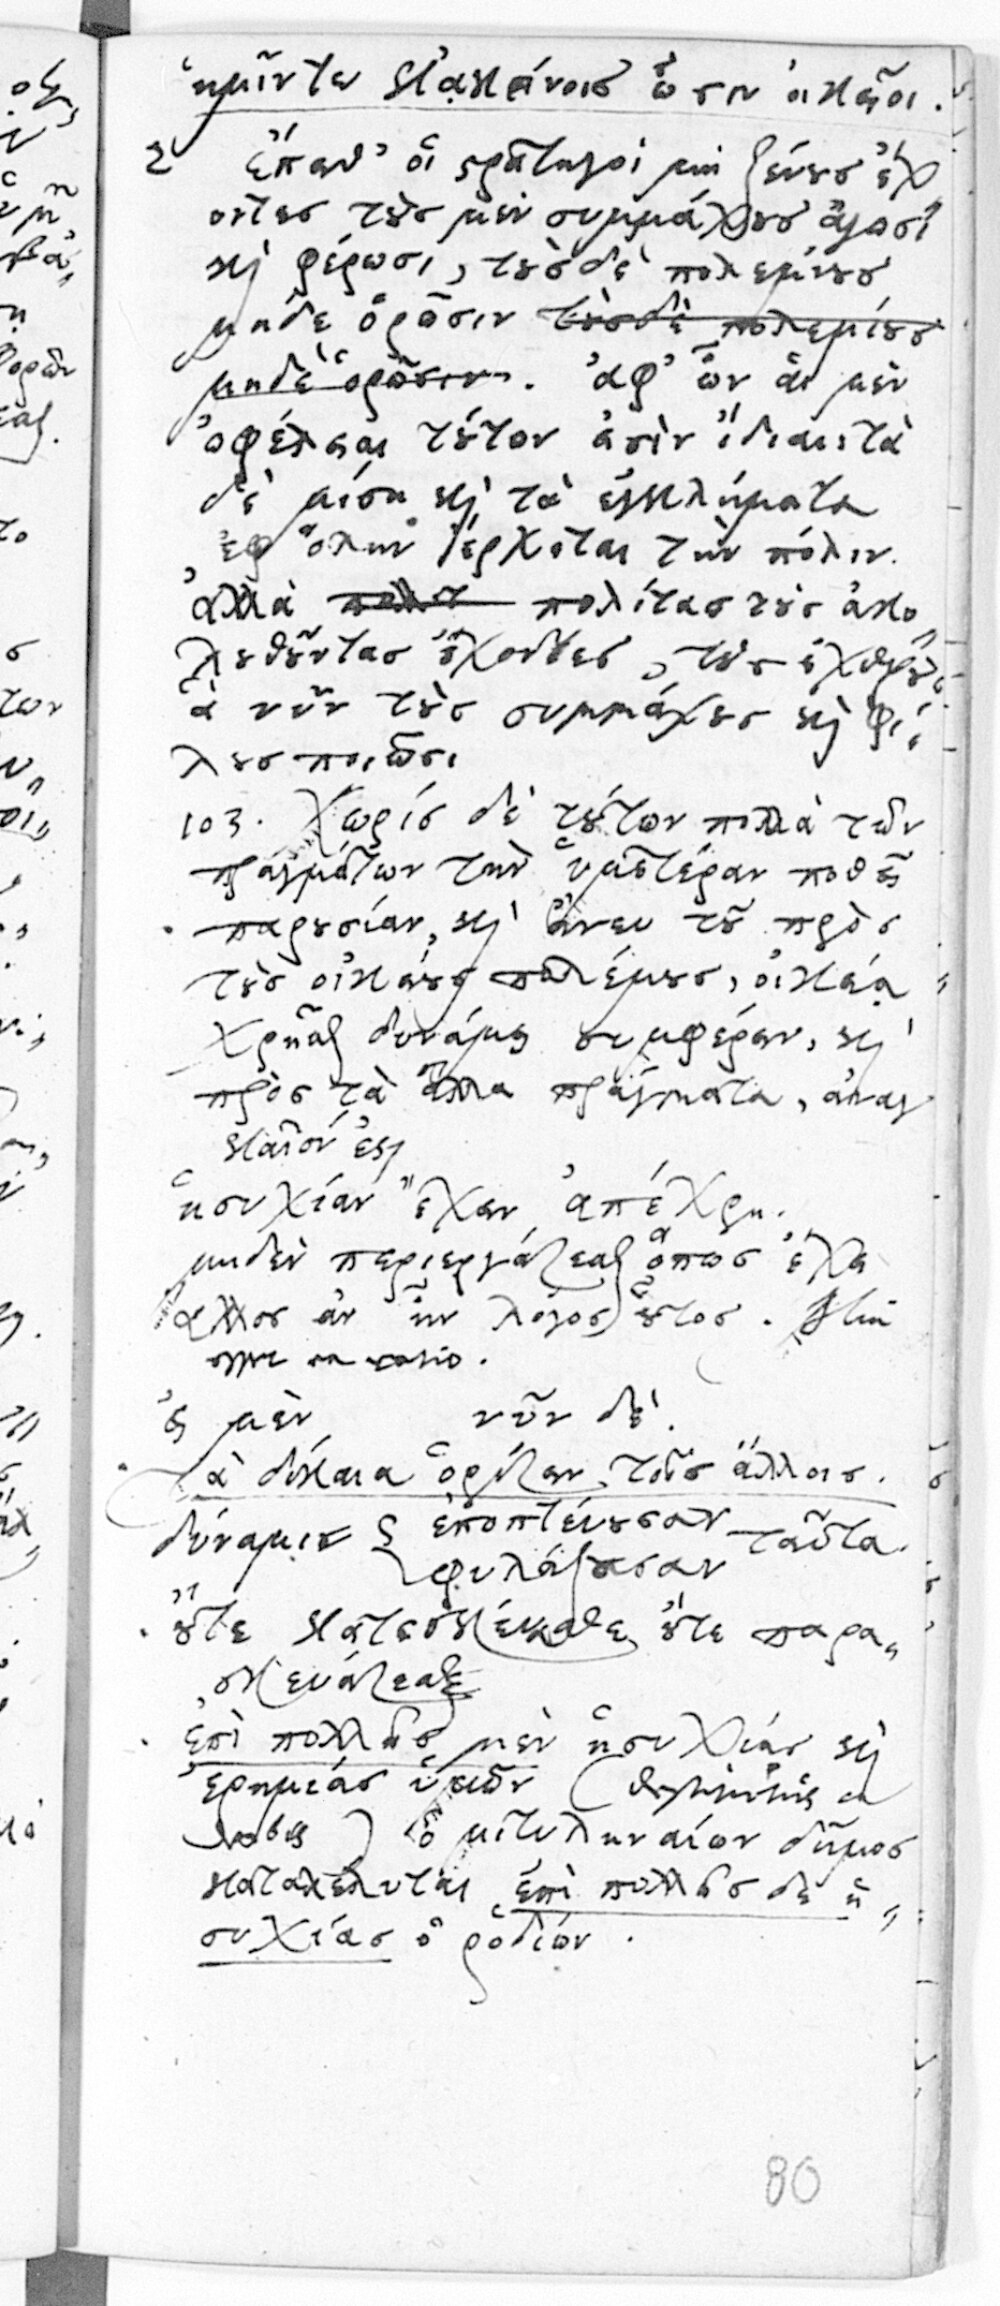 ἡμῖν τε κἀκείνοις ὦσιν οἰκεῖοι.
ἔπειθ' οἱ στρατηγοὶ μὴ ξένους ἔχ
οντες τοὺς μὲν συμμάχους ἄγωσι
καὶ φέρωσι, τοὺς δὲ πολεμίους
μηδὲ ὁρῶσιν τοὺς δὲ πολεμίους
μηδὲ ὁρῶσιν. ἀφ' ὧν αἱ μὲν
ὠφέλειαι τούτων εἰσὶν ἴδιαι, τὰ
δὲ μίση καὶ τὰ ἐγκλήματα
ἐφ' ὅλην ἔρχεται τὴν πόλιν.
ἀλλὰ πολιτ πολίτας τοὺς ἀκο
λουθοῦντας ἔχοντες, τοὺς ἐχθροὺς
ἃ νῦν τοὺς συμμάχους καὶ φί,
λους ποιῶσι
103. Χωρὶς δὲ τούτων πολλὰ τῶν
πραγμάτων τὴν ὑμετέραν ποθεῖ
παρουσίαν, καὶ ἄνευ τοῦ πρὸς
τοὺς οἰκείους πολέμους, οἰκεία
χρῆσθαι δυνάμει συμφέρειν, καὶ
πρὸς τὰ ἄλλα πράγματα, ἀναγ
καῖόν ἐστι
ἡσυχίαν ἔχειν ἀπέχρη.
μηδὲν περιεργάζεσθαι ὅπως ἔχει
ἄλλος ἂν ἦν λόγος οὗτος.
εἰ μὲν νῦν δὲ.
τὰ δίκαια ὁρίζειν τοῖς ἄλλοις.
δύναμις ἐποπτεύουσαν ταῦτα.
φυλάξασαν
οὔτε κατεσκεύασθε οὔτε παρα,
σκευάζεσθε
ἐπὶ πολλῆς μὲν ἡσυχίας καὶ
ἐρημίας ὑμῶν
ὁ μιτυληναίων δῆμος
καταλέλυται ἐπὶ πολλῆς δὲ ἡ,
συχίας ὁ ῥοδίων.
80